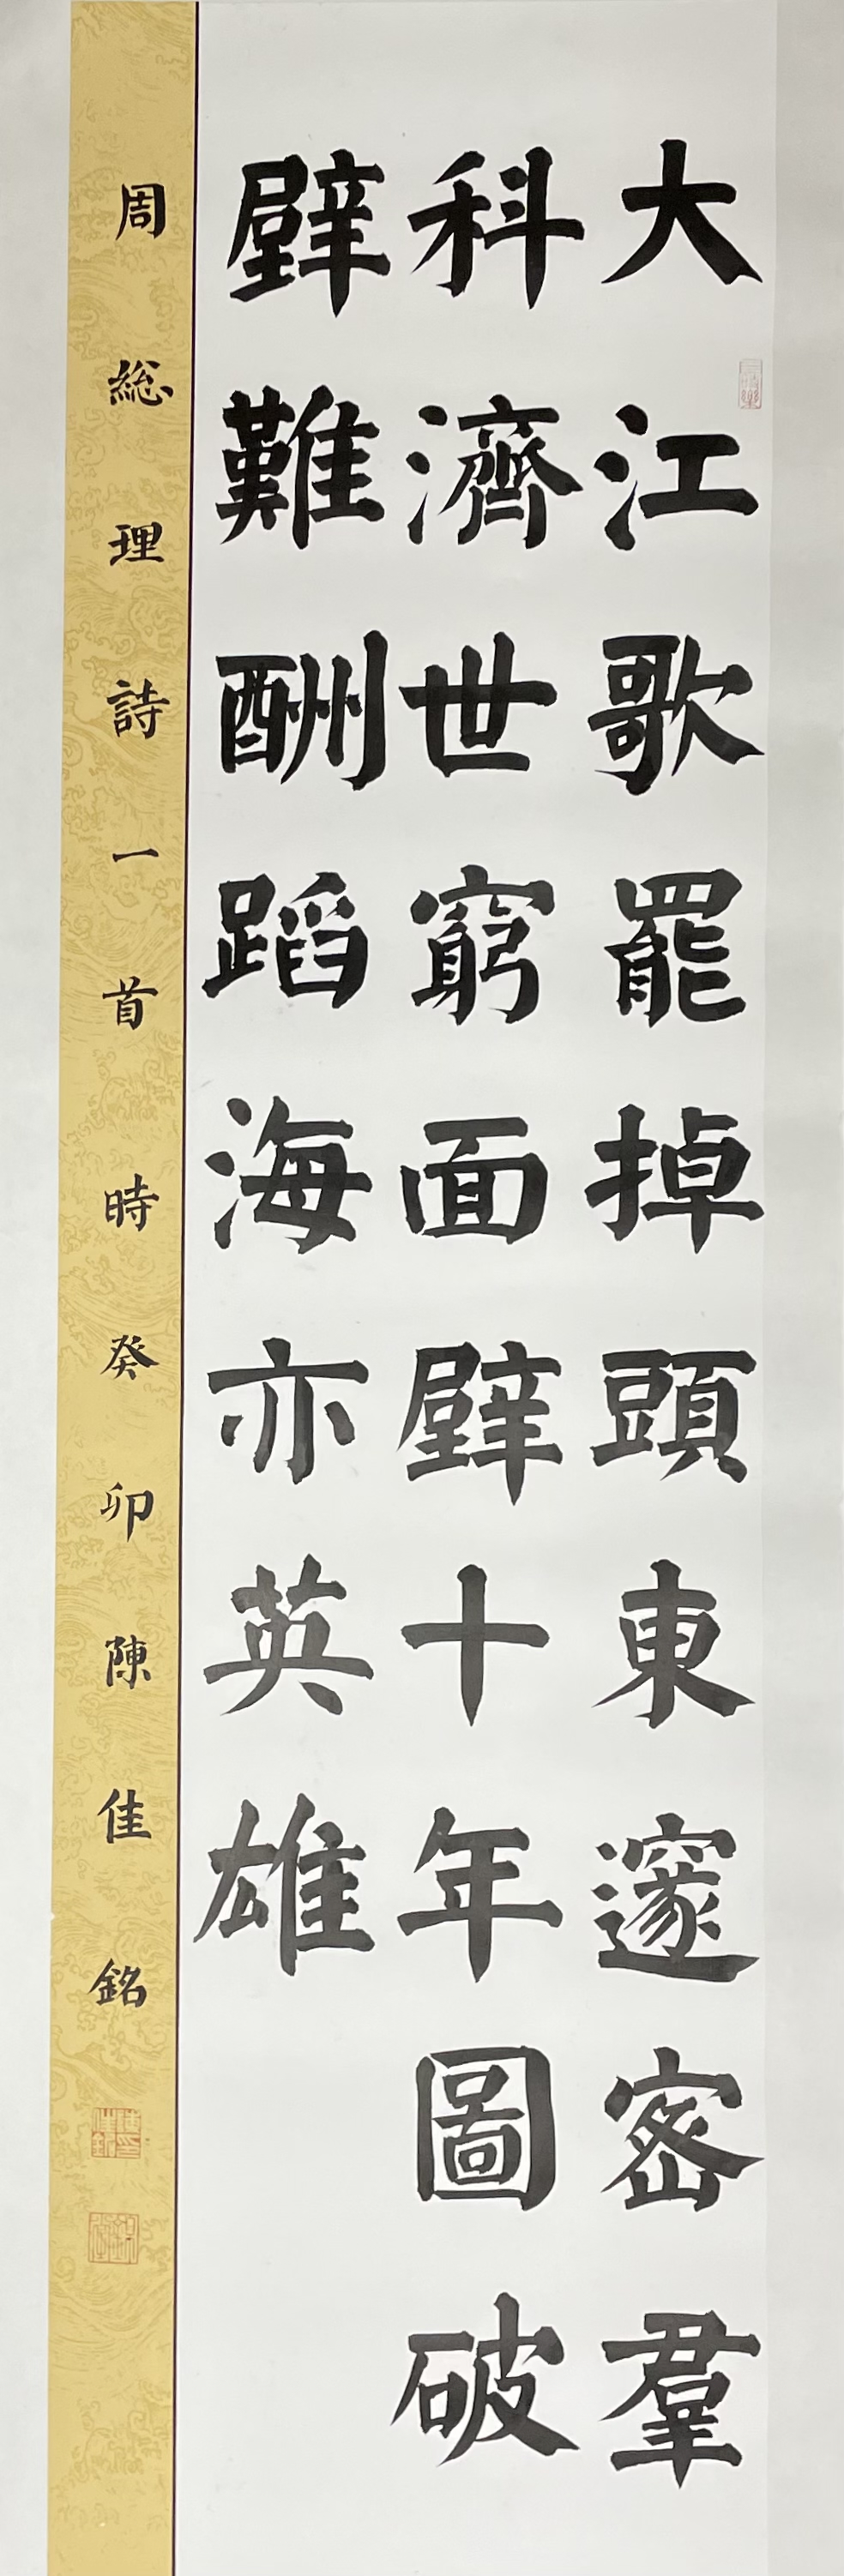 大江歌罷掉頭東邃密羣
科濟世窮面壁十年圖破
壁難酬蹈海亦英雄
周総理詩一首時癸卯陳佳銘